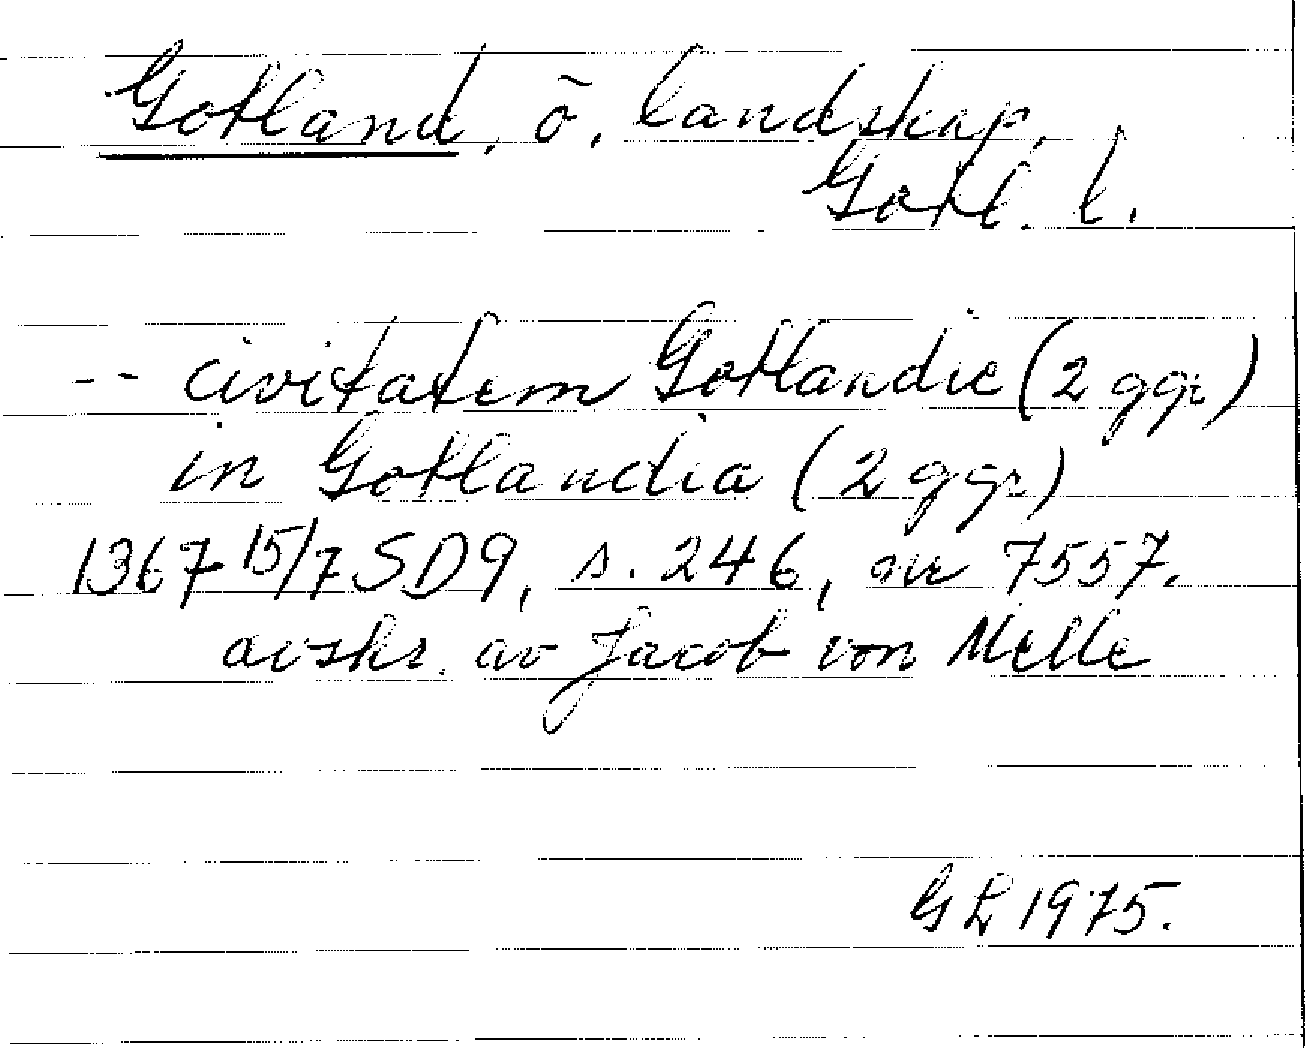 Gotland, ö, landskap,
Gotl. l.
-- civitatem Gotlandie (2 ggr)
in Gotlandia (2 ggr)
1367 15/7 SD9, s. 246, nr 7557.
avskr. av Jacob von Melle
GL 1975.